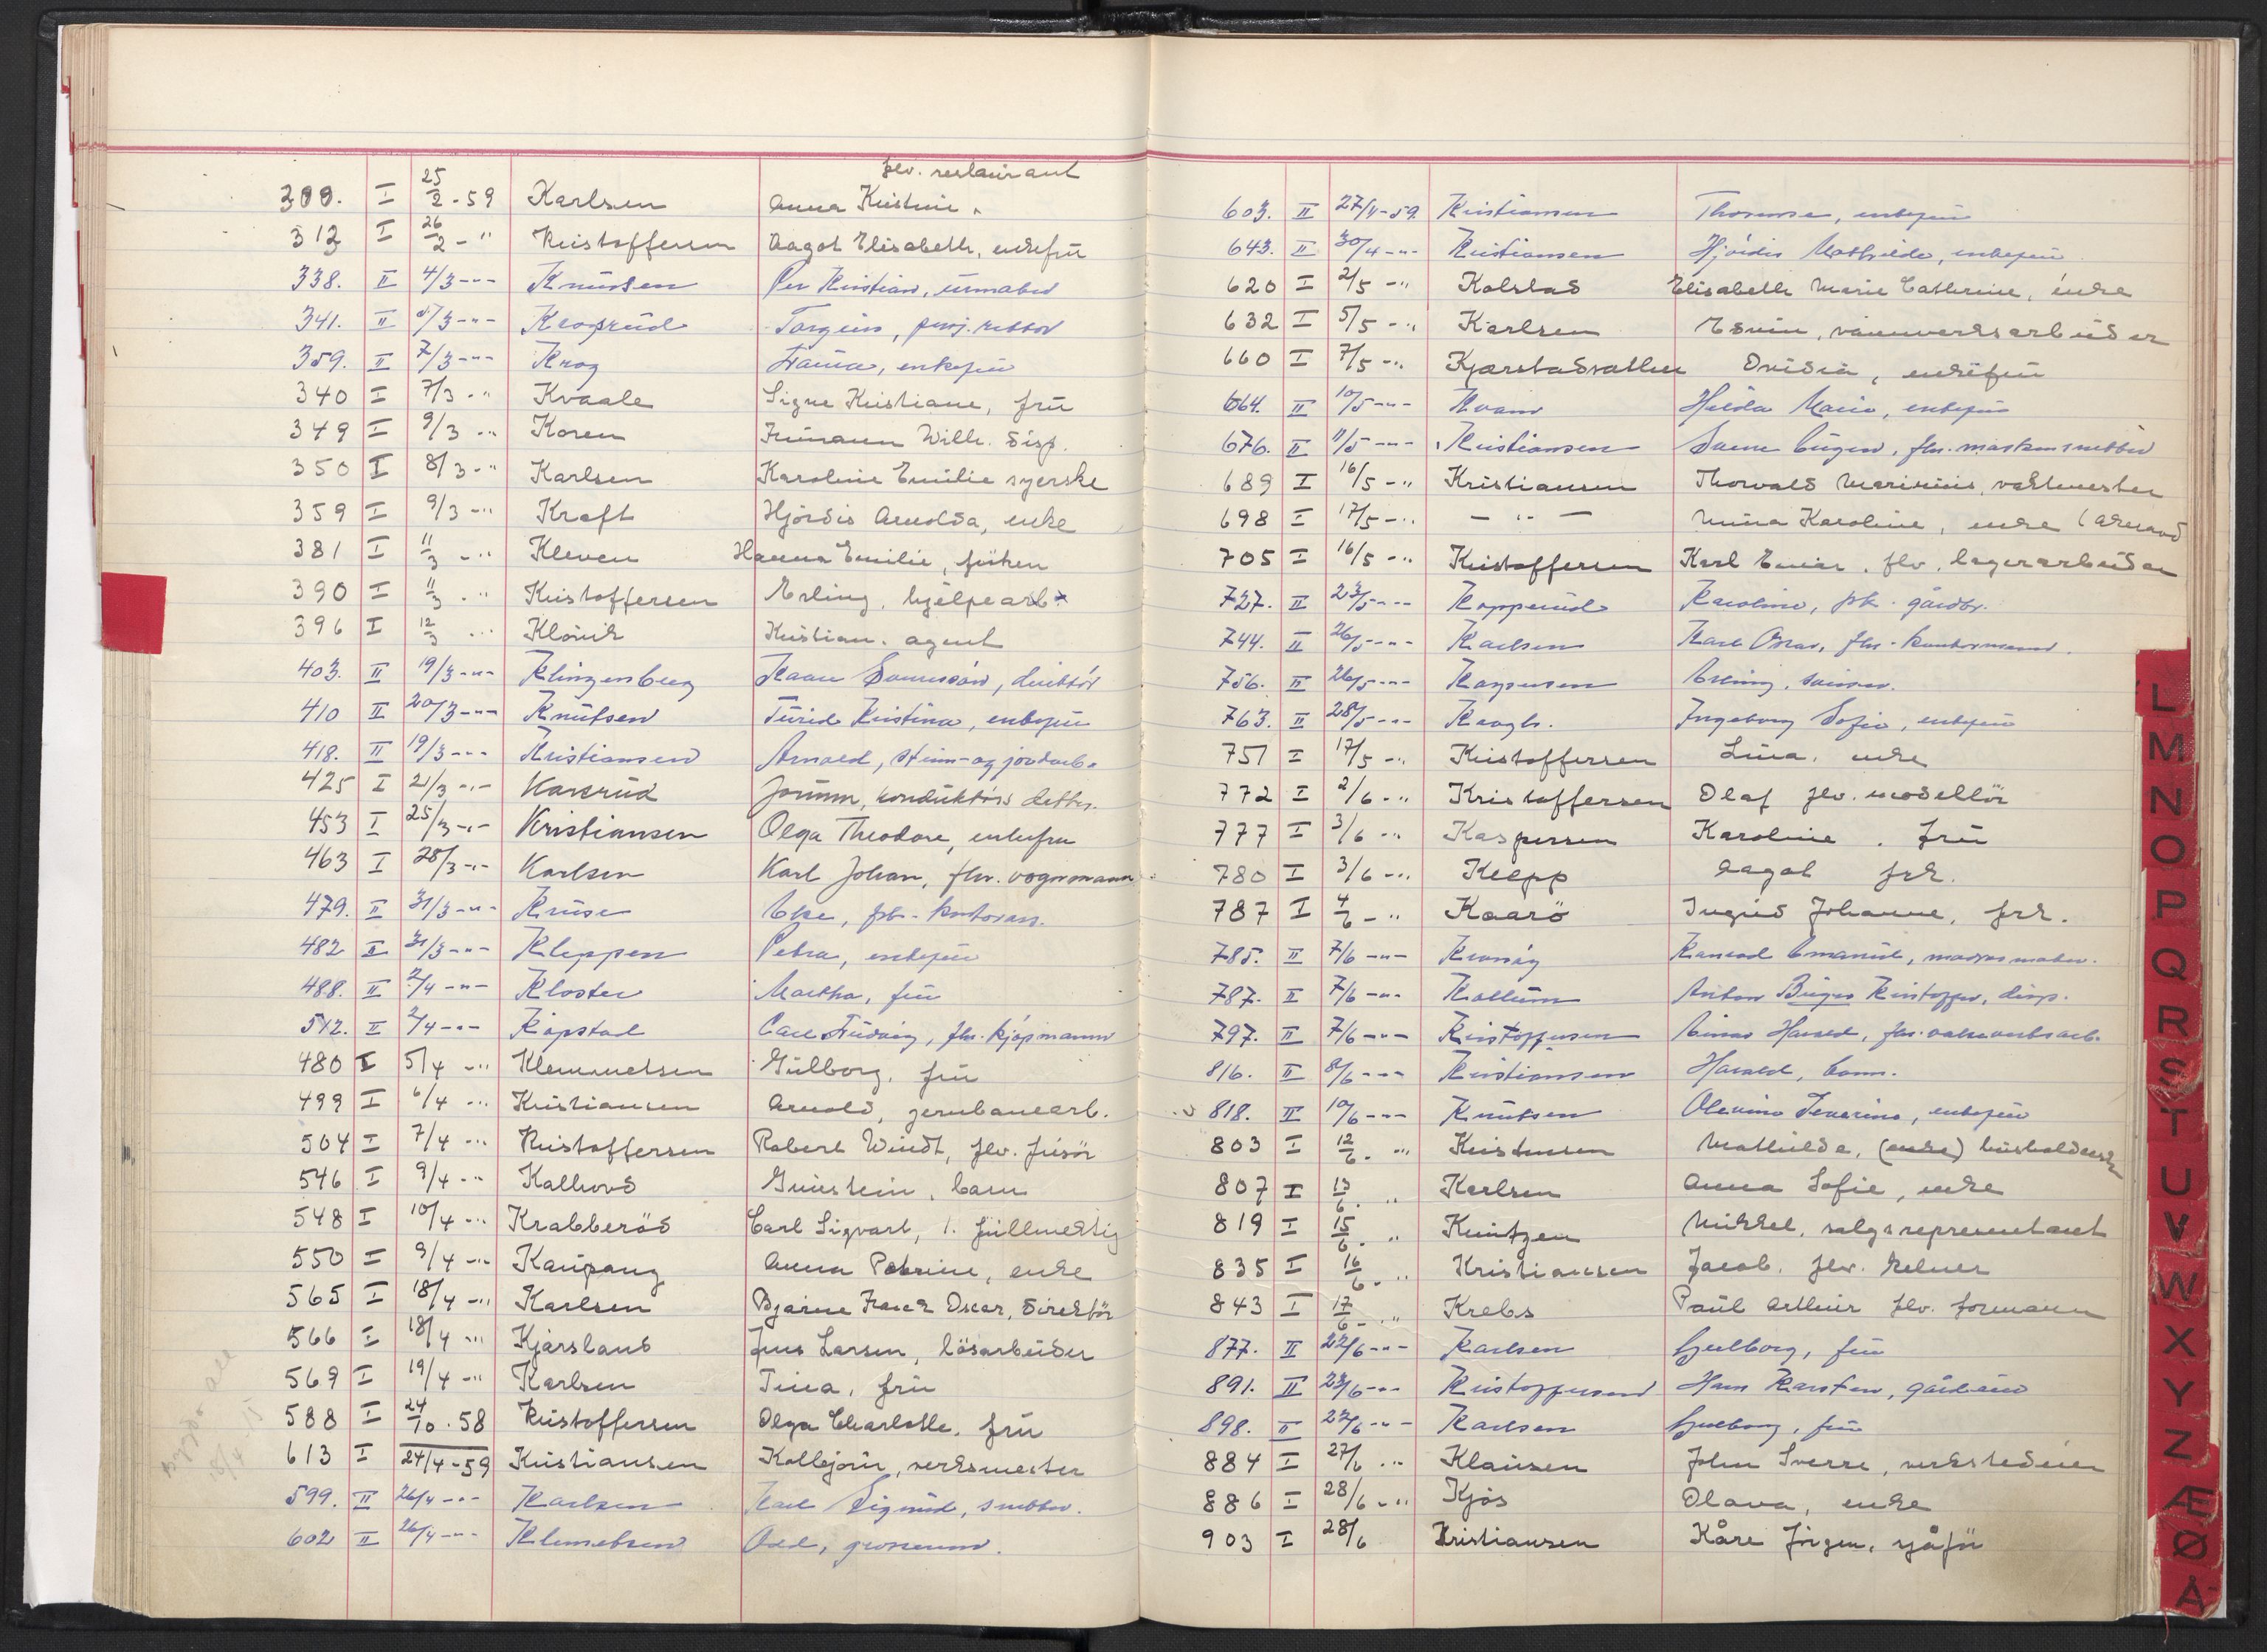 flv. restaurant
300. I 25/2-59 Karlsen Anna Kristine
312 I 26/2-" Kristoffersen Aagot Elisabeth, enkefru
338. II 4/3-"- Knutsen Per Kristian, urmaker
341. II 5/3-"- Torgeir, rektor
359. II 7/3-"- Krog enkefru
340 I 7/3-" Kvaale Signe Kristiane, fru
349 I 9/3-" Koren Wilh. disp.
350 I 8/3-" Karlsen Karoline Emilie syerske
359 I 9/3-" Kraft Hjördis Arnolda, enke
381 I 11/3-" Kleven Hanna Emilie, fröken
390 I 11/3-" Kristoffersen Erling, hjelpearb.
396 I 12/3-" Klövik Kristian. agent
403. II 19/3-"- Klingenberg Kaare direktör
410 II 20/3-"- Knutsen Turid Kristina, enkefru
418. II 19/3-"- Kristiansen Arnold, stein- og jordarb.
425 I 21/3-"- Karsrud Jorunn, konduktörs datter.
453 I 25/3-"- Kristiansen Olga Theodore, enkefru
463 I 28/3-"- Karlsen Karl Johan, fhv. vognmann
479. II 31/3-"- Kruse Else, frk. kontorass.
482 II 31/3-"- Kleppen Petra, enkefru
488. II 2/4-"- Kloster Martha, fru
512. II 2/4-"- Kopstad Carl Ludvig, fhv. kjöpmann
480 I 5/4-" Klemmetsen Gulborg, fru
499 I 6/4-" Kristiansen Arnold, jernbanearb.
504 I 7/4-" Kristoffersen Robert Windt, flv. frisör
546 I 9/4-" Kalhovd Gunstein, barn
548 I 10/4-" Krabberöd Carl Sigvart, 1. fullmektig
550 I 9/4-" Kaupang Anna Petrine, enke
565 I 18/4-" Karlsen Bjarne Frank Oscar, direktör
566 I 18/4-" Kjærsland Jens Larsen, lösarbeider
569 I 19/4-" Karlsen Tina, fru
588 I 24/10.58 Kristoffersen Olga Charlotte, fru
613 I 24/4-59 Kristiansen Kolbjörn, verksmester
599. II 26/4-"- Karlsen Karl Sigurd, snekker.
602 II 26/4-"- Klemetsen Odd, grosserer.
603. II 27/4-59. Kristiansen Thorense, enkefru
643. II 30/4-"- Kristiansen Hjördis Mathilde, enkefru
620 I 2/5-" Kolstad Elisabeth Marie Cathrine, enke
632 I 5/5-" Karlsen Edvin, valseverksarbeider
660 I 7/5-" Kjærstadvatten Ovidia, enkefru
664. II 10/5-"- Kvam Hulda Marie, enkefru
676. II 11/5-"- Kristiansen Eugen, fhv. maskinsnekker
689 I 16/5-" Kristiansen Thorvald Marinius, vaktmester
698 I 17/5-" - " - Mina Karoline, enke (Arnand
705 I 16/5-" Kristoffersen Karl Einar, flv. lagerarbeider
727. II 23/5-"- Kopperud Karoline, frk. gårdbr.
744. II 26/5-"- Karlsen Karl Oskar, fhv. kontormann.
756. II 26/5-"- Kaspersen
763. II 28/5-"- Krogh. Ingeborg Sofie, enkefru
751 I 17/5-" Kristoffersen Lina, enke
772 I 2/6-" Kristoffersen Olaf flv. modellör
777 I 3/6-" Kaspersen Karoline, fru
780 I 3/6-" Klepp Aagot frk.
787 I 4/6-" Kaarö Ingrid Johanne, frk.
785. II 7/6-"- Kronvig Konrad Emanuel, madrasmaker.
787. II 7/6-"- Kollum Anton Birger Kristoffer, disp.
797. II 7/6-"- Kristoffersen Einar Harald, fhv. valseverksarb.
816. II 8/6-"- Kristiansen Harald, barn.
818. II 10/6-"- Knutsen Olevine Severine, enkefru
803 I 12/6-" Kristensen Mathilde, (enke) husholderske
807 I 13/6-" Karlsen Anna Sofie, enke
819 I 15/6-" Knutzen Mikkel, salgsrepresentant
835 I 16/6-" Kristiansen Jacob, flv. kelner
843 I 17/6-" Krebs Paul Arthur flv. formann
877. II 22/6-"- Karlsen Gulborg, fru
891. II 23/6-"- Kristoffersen Hans Karsten, gårdeier
898. II 27/6-"- Karlsen Gulborg, fru
884 I 27/6-" Klausen John Sverre, verkstedeier
886 I 28/6-" Kjös Olava, enke
903 I 28/6 Kristiansen Kåre Jörgen, sjåför
L
M
N
O
P
Q
R
S
T
U
V
W
X
Y
Z
Æ
Ø
Å